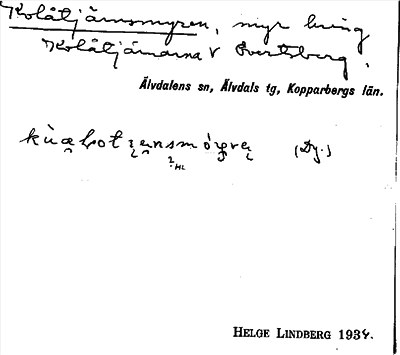 Kolåtjärnsmyren, myr kring
Kolåtjärnarna V Evertsberg.
Älvdalens sn, Älvdals tg, Kopparbergs län.
(Dy.)
HELGE LINDBERG 1934.